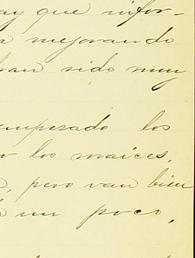 ay que infor-
mejorando
han sido muy
empezado los
los maices,
, pero van bien
un poco,